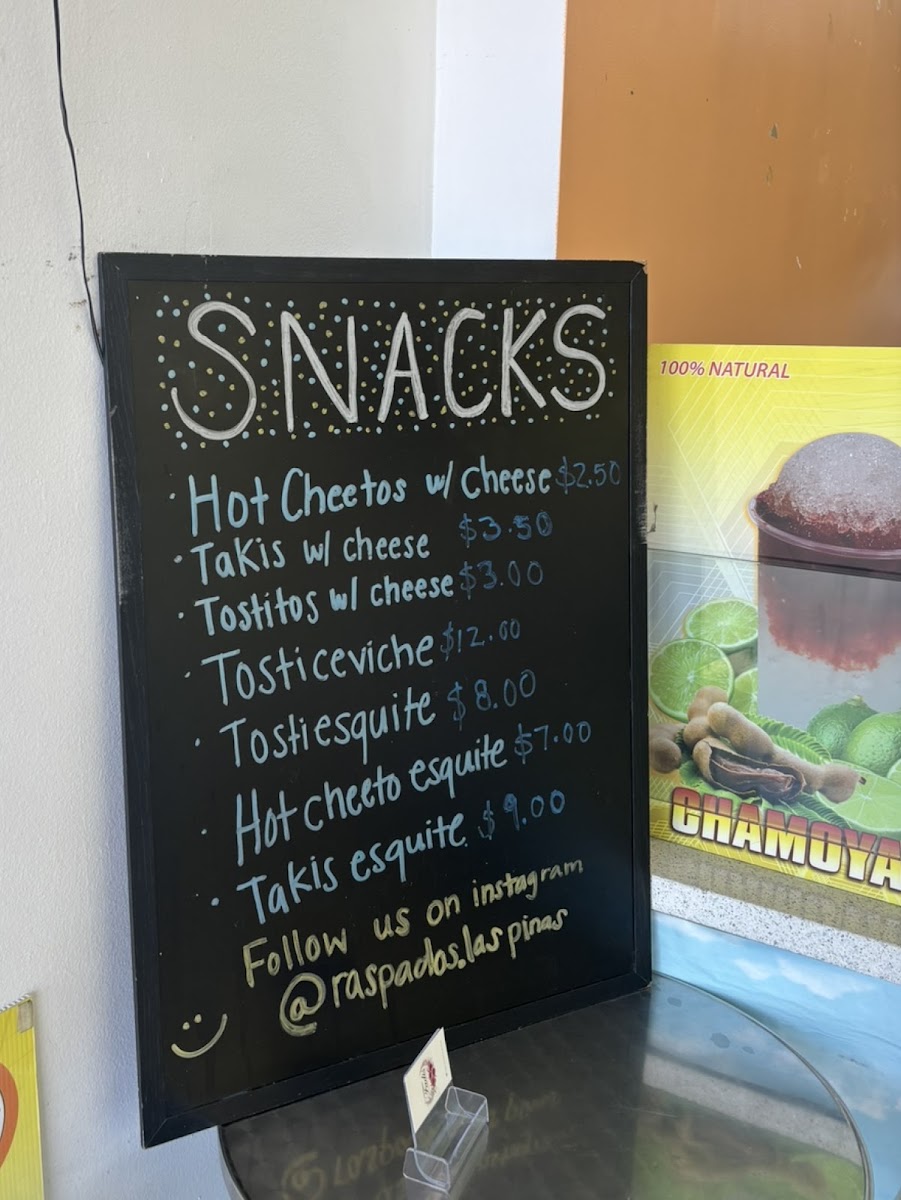 SNACKS
· Hot Cheetos w/ cheese $2.50
· Takis w/ cheese $3.50
· Tostitos w/ cheese $3.00
· Tosticeviche $12.00
· Tostiesquite $8.00
· Hot cheeto esquite $7.00
· Takis esquite $9.00
Follow us on instagram
@raspados.laspinas
100% NATURAL
CHAMOYA